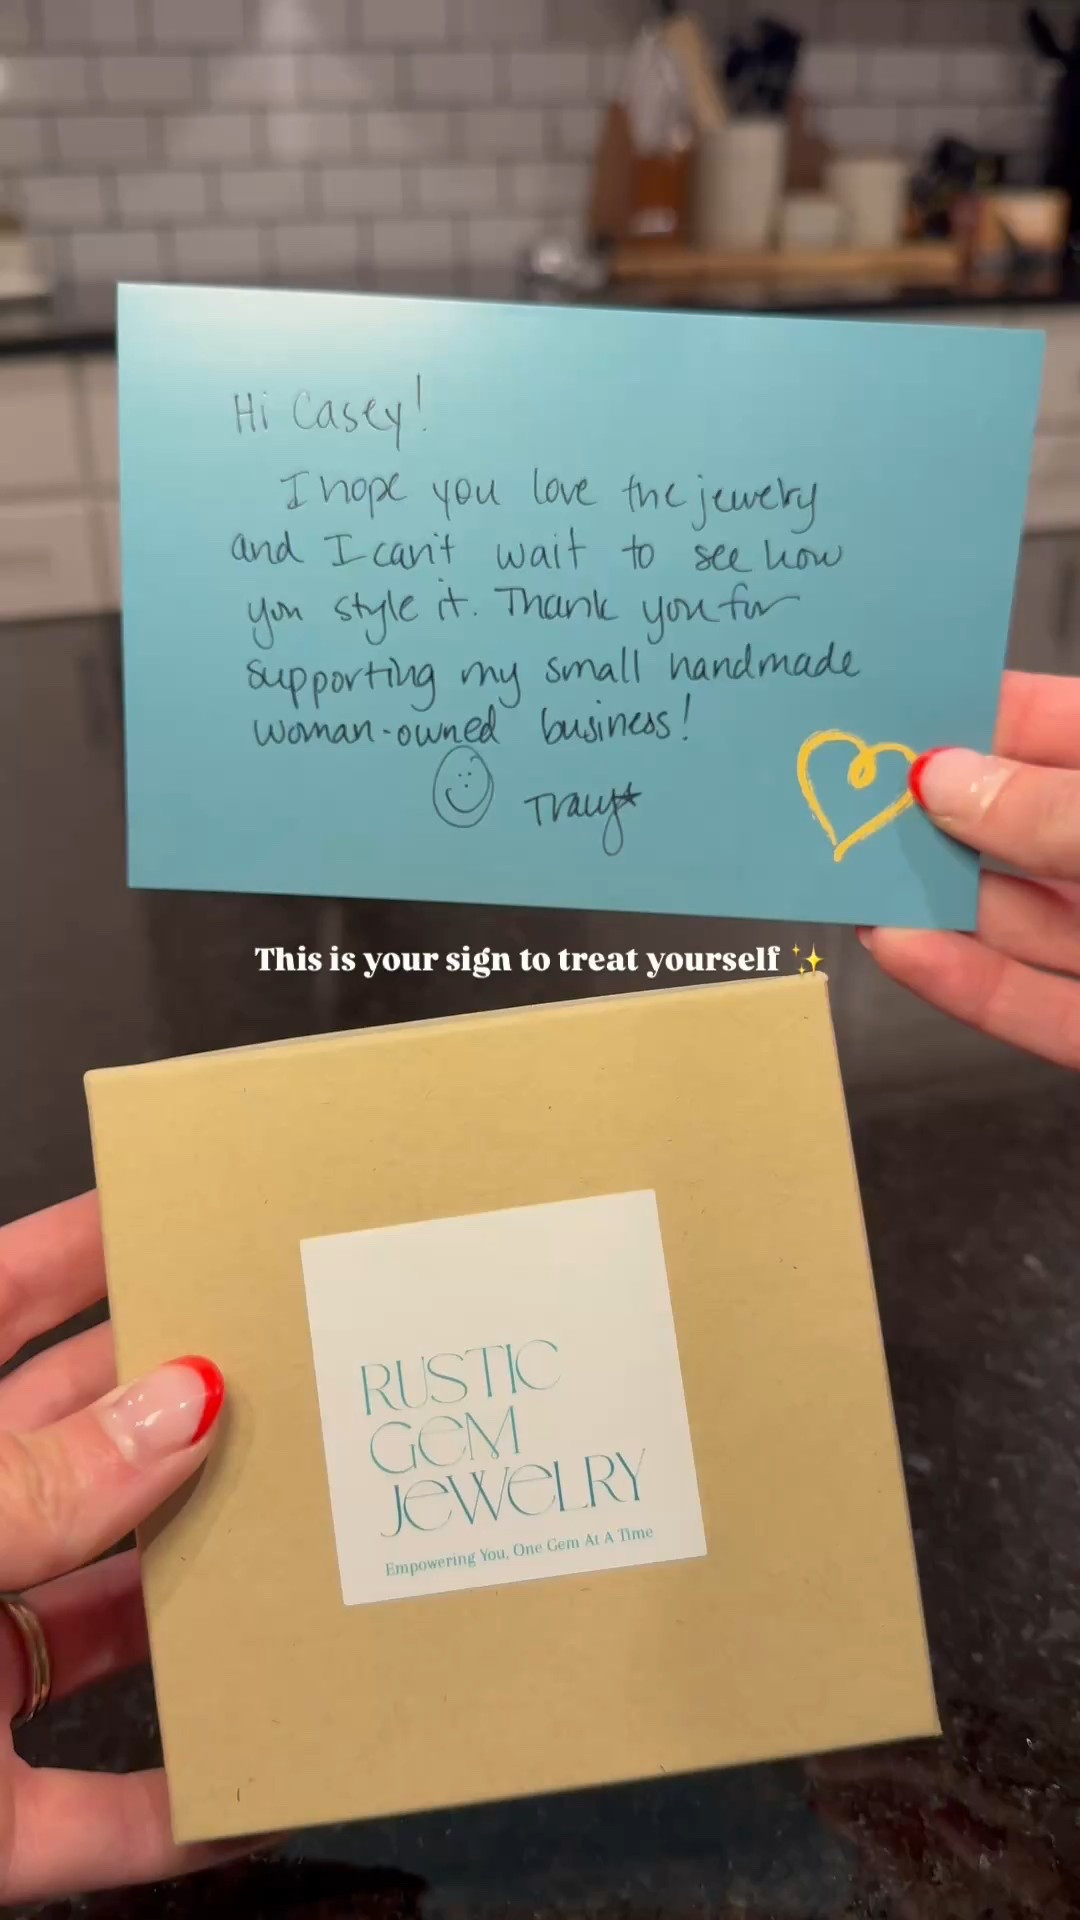 Hi Casey!
I hope you love the jewelry
and I can't wait to see how
you style it. Thank you for
supporting my small handmade
woman-owned business!
Tracy
This is your sign to treat yourself ✨
RUSTIC
GEM
JEWELRY
Empowering You, One Gem At A Time